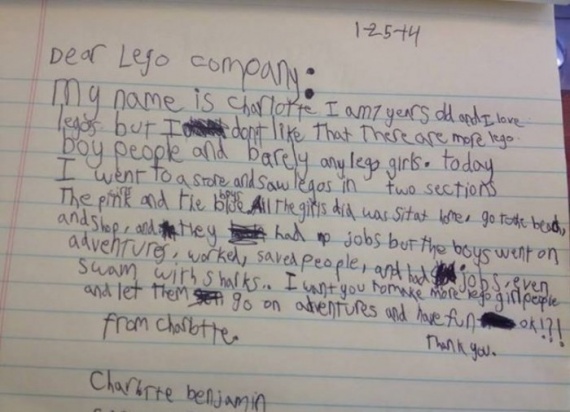 1-25-14
Dear Lego company:
My name is Charlotte I am 7 years old and I love
legos but I don't like that there are more lego
boy people and barely any lego girls. today
I went to a store and saw legos in two sections
The pink and the blue. All the girls did was sit at home, go to the beach,
and shop, and they had no jobs but the boys went on
adventures, worked, saved people, and had jobs, even
swam with sharks. I want you to make more lego girl people
and let them go on adventures and have fun ok!?!
from charlotte. Thank you.
Charlotte benjamin